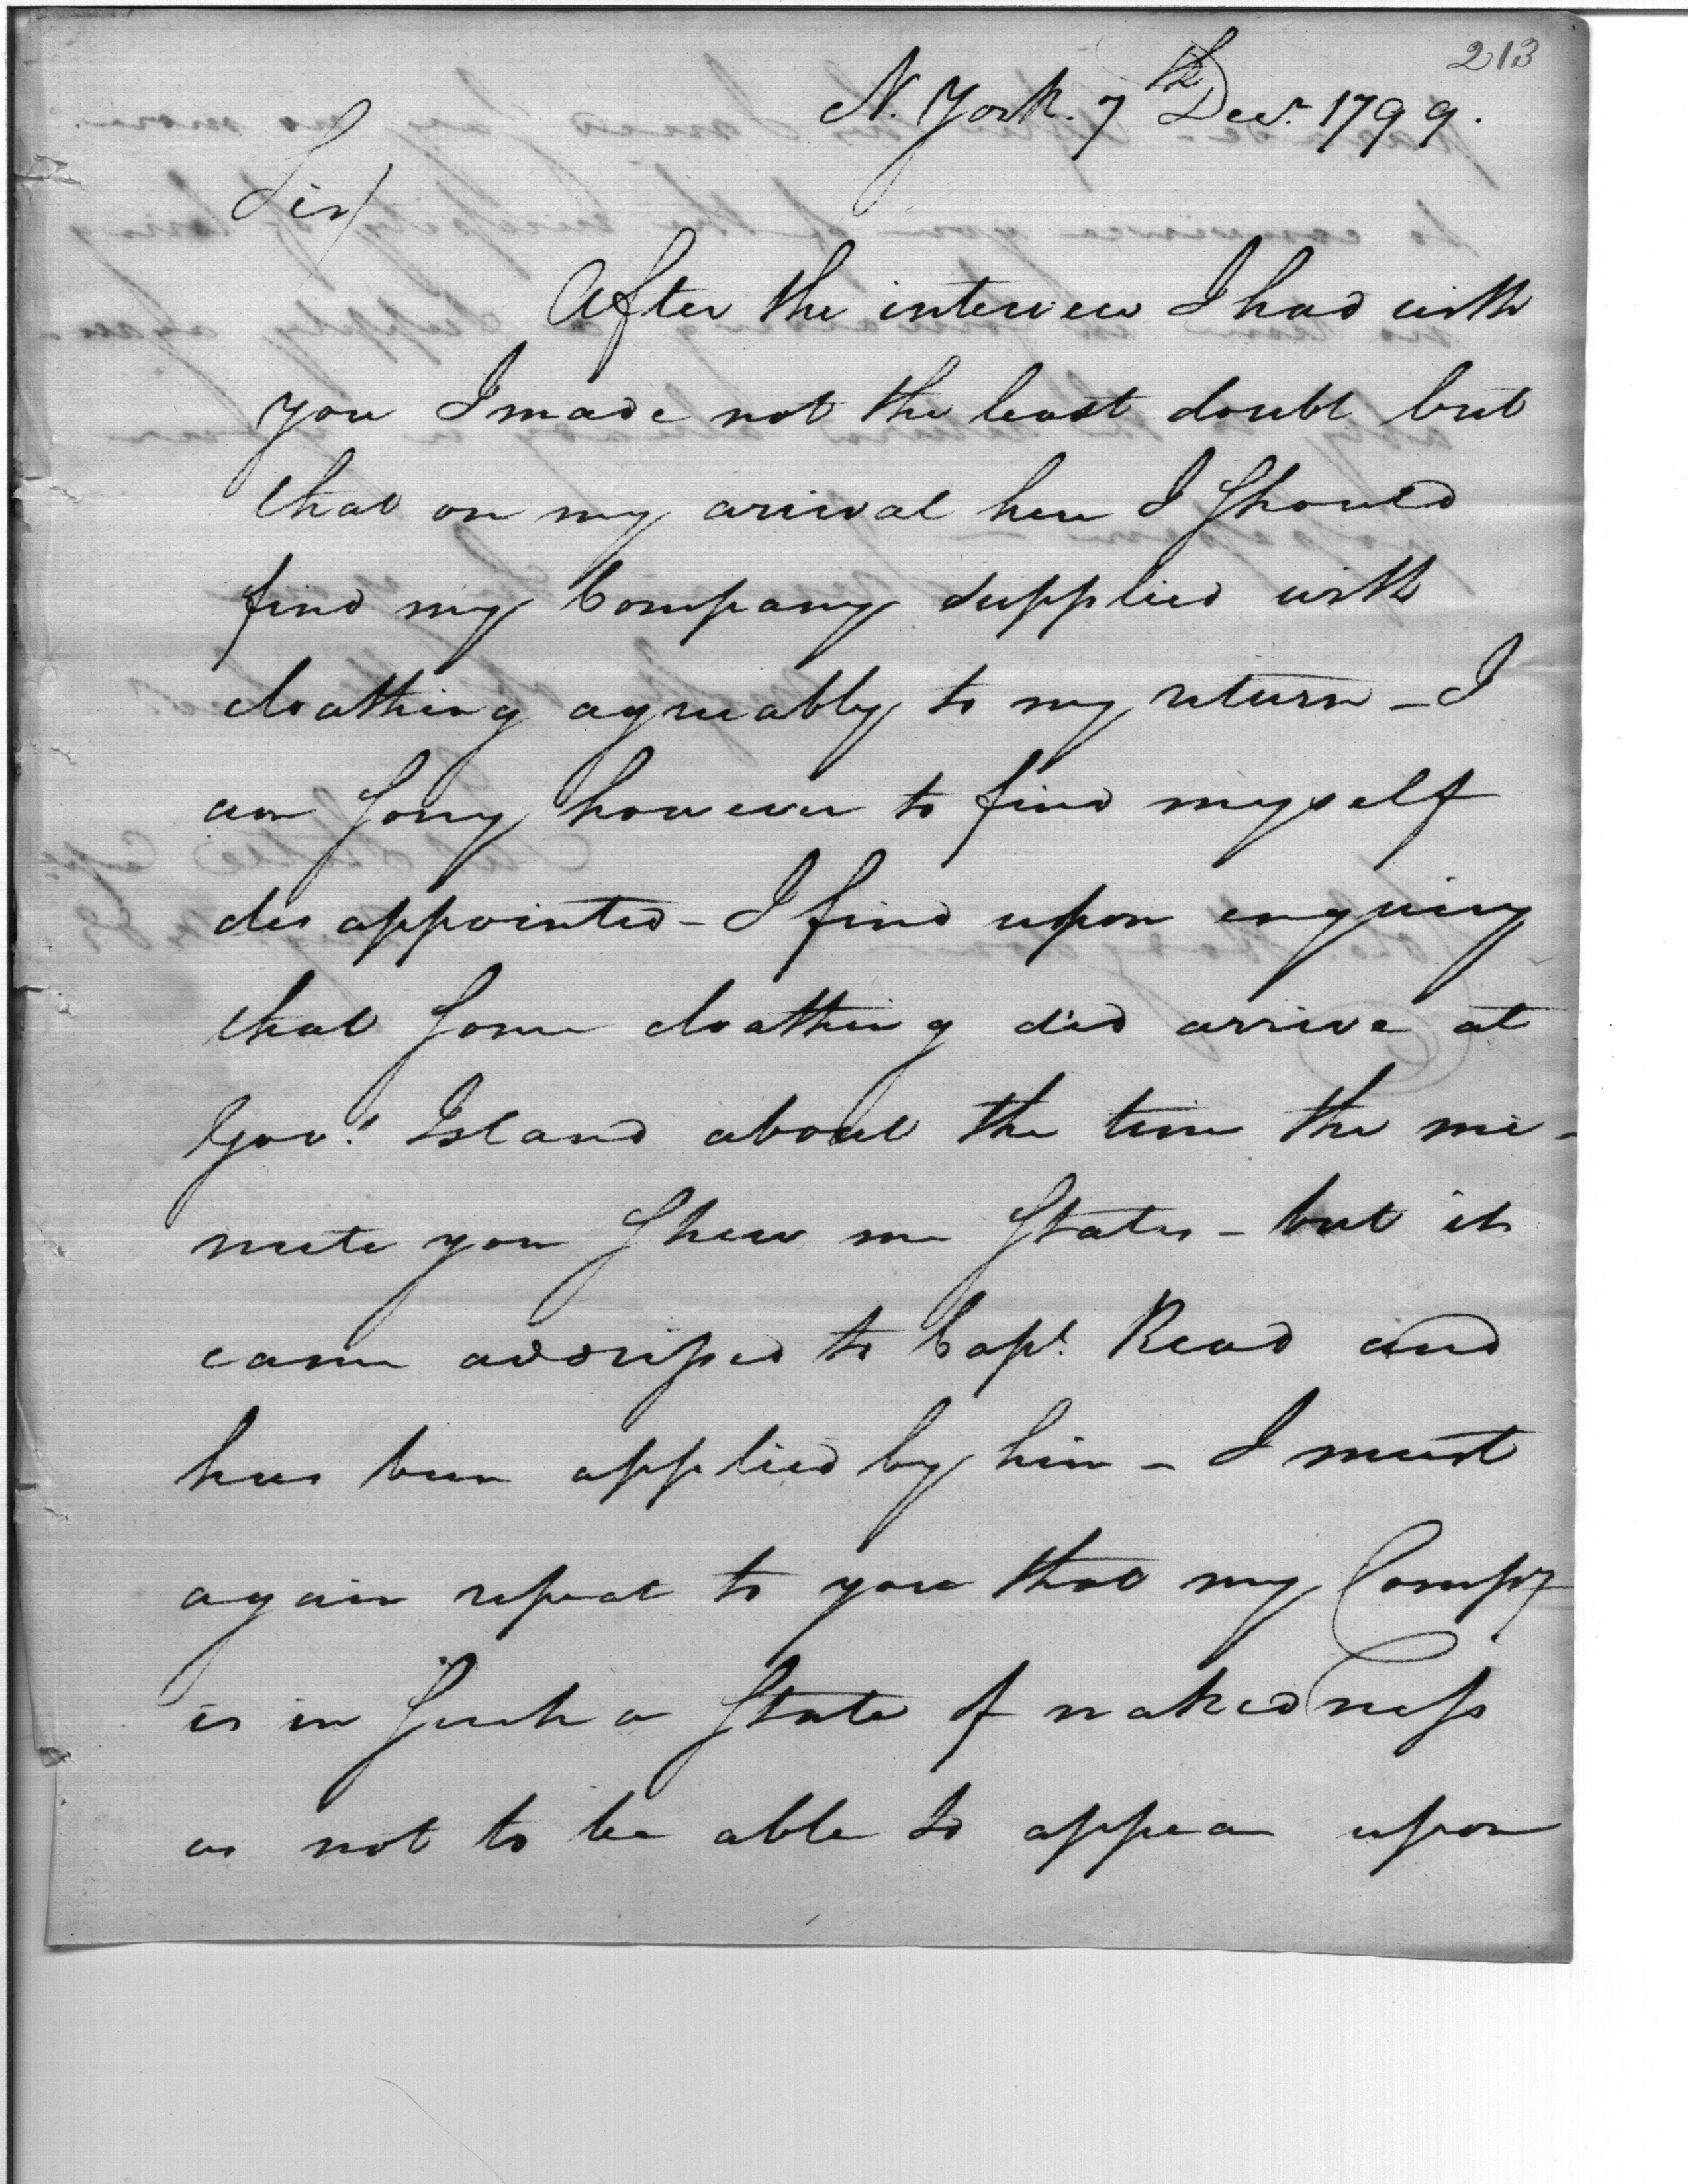 213
N. York. 7th Decr. 1799.
Sir/
After the interview I had with
you I made not the least doubt but
that on my arival here I should
find my Company supplied with
cloathing agreeably to my return - I
am sorry however to find myself
disappointed - I find upon enquiry
that some cloathing did arrive at
Govs. Island about the time the mi-
nute you shew me states - but it
came addressed to Capt. Read and
has been applied by him - I must
again repeat to you that my Compy
is in such a state of nakedness
as not to be able to appear upon